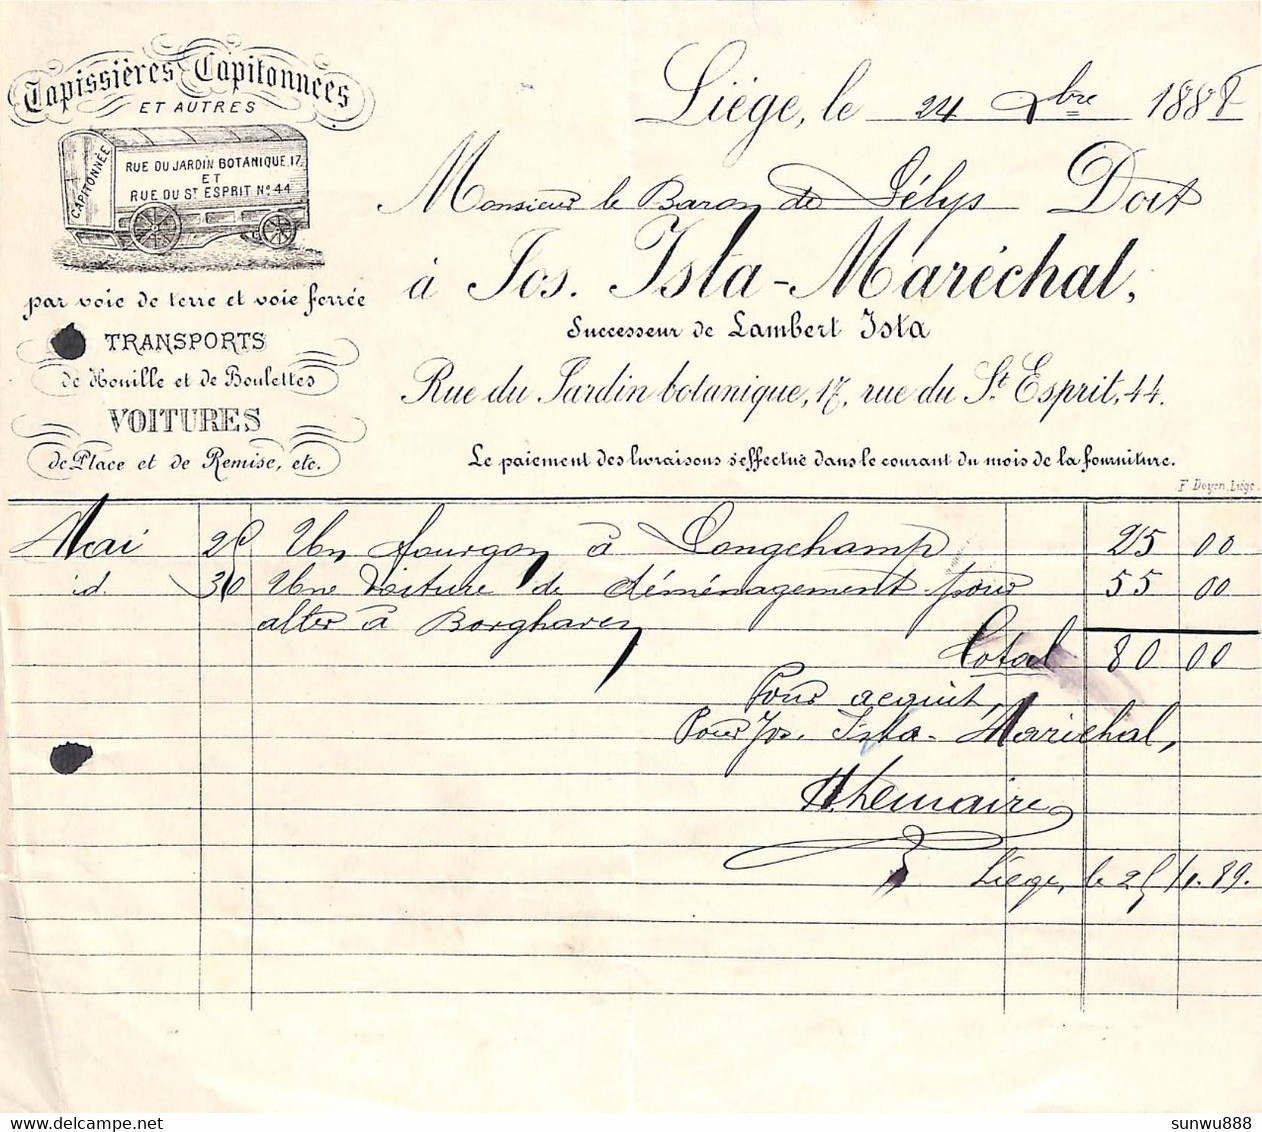 Tapissières Capitonnées
ET AUTRES
CAPITONNÉE
RUE DU JARDIN BOTANIQUE 17
ET
RUE DU ST ESPRIT No 44
par voie de terre et voie ferrée
TRANSPORTS
de Houille et de Boulettes
VOITURES
de Place et de Remise, etc.
Liége, le 24 Xbre 1888
Monsieur le Baron de Sélys Doit
à Jos. Ista-Maréchal,
Successeur de Lambert Ista
Rue du Jardin botanique, 17, rue du St. Esprit, 44.
Le paiement des livraisons s'effectue dans le courant du mois de la fourniture.
F. Doyen, Liége.
Mai 25 Un fourgon à Longchamp 25 00
id. 30 Une voiture de déménagement pour 55 00
aller à Borgharen
Total 80 00
Pour acquit,
Pour Jos. Ista-Maréchal,
H. Lemaire
Liége, le 25/1. 89.
sunwu888